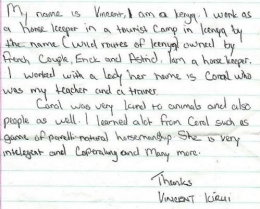 My name is Vincent. I am a kenya. I work as
a horse keeper in a tourist Camp in kenya by
the name (Wild routes of kenya) owned by
French Couple, Erick and Astrid. I am a horse keeper.
I worked with a lady her name is Coral who
was my teacher and a trainer.
Coral was very kind to animals and also
people as well. I learned alot from Coral such as
game of parelli natural horsemanship She is very
intelegent and Coperating and many more.
Thanks
VINCENT KIRUI